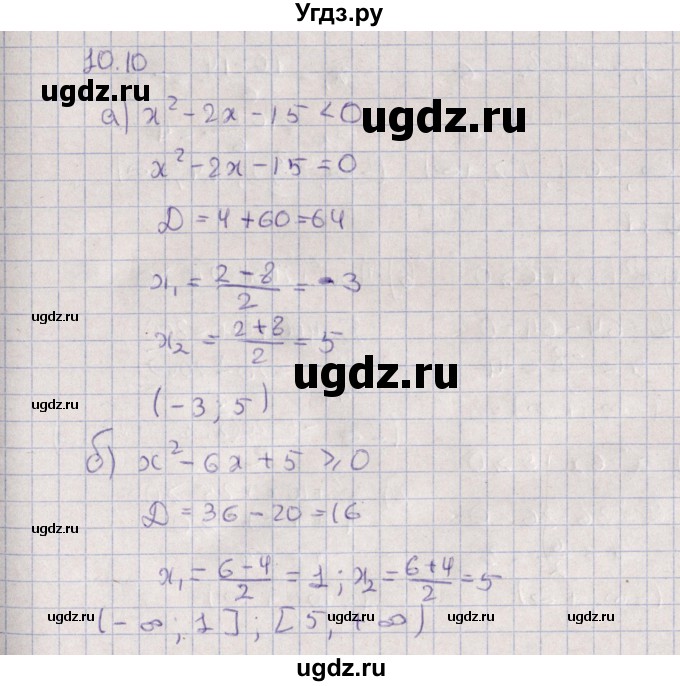 Угдз.ру
10.10
ugdz.ru
а) x² - 2x - 15 < 0
ugdz.ru
x² - 2x - 15 = 0
D = 4 + 60 = 64
x₁ = (2 - 8)/2 = -3
ugdz.ru
ugdz.ru
x₂ = (2 + 8)/2 = 5
ugdz.ru
(-3; 5)
ugdz.ru
ugdz.ru
б) x² - 6x + 5 ⩾ 0
D = 36 - 20 = 16
ugdz.ru
x₁ = (6 - 4)/2 = 1; x₂ = (6 + 4)/2 = 5
(-∞; 1]; [5, +∞)
ugdz.ru
ugdz.ru
ugdz.ru
ugdz.ru
ugdz.ru